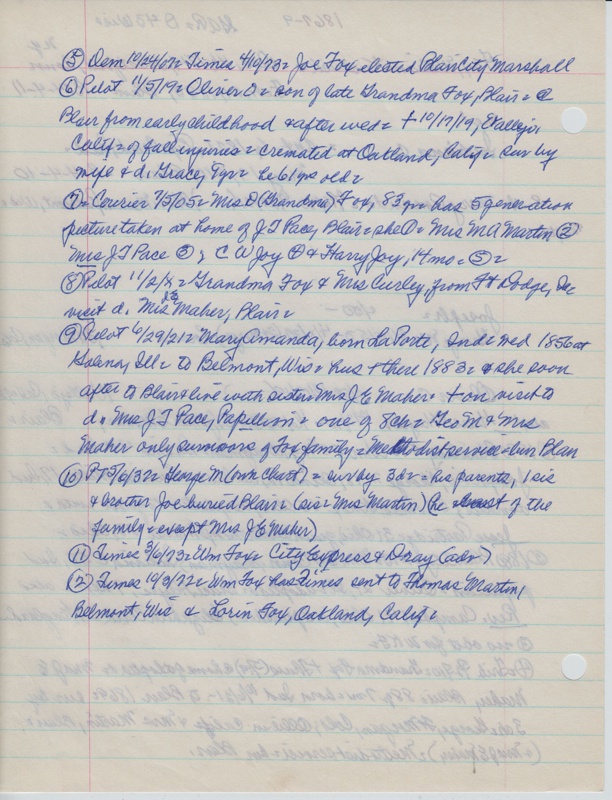 ⑤ Dem 10/24/07= Times 4/10/73= Joe Fox elected Blair City Marshall
⑥ Pilot 11/5/19= Oliver O= son of late Grandma Fox, Blair=
Blair from early childhood & after wed= + 10/17/19, Vallejo,
Calif= of fall injuries= cremated at Oakland, Calif= sur by
wife & d. Grace, 7yr= he 61 yrs old=
⑦= Courier 7/5/05= Mrs O (Grandma) Fox, 83 yr= has 5 generation
picture taken at home of J T Pace, Blair= she ①= Mrs M A Martin ②
Mrs J T Pace ③, C W Joy ④ & Harry Joy, 14 mo= ⑤=
⑧ Pilot 11/2/ = Grandma Fox & Mrs Curley, from Ft Dodge, Ia
visit d. Mrs JE Maher, Blair=
⑨ Pilot 6/29/21= Mary Amanda, born LaPorte, Ind= wed 1856 at
Galena, Ill= to Belmont, Wis= hus + there 1883= & she soon
after to Blair & live with sister Mrs J E Maher= + on visit to
d. Mrs J T Pace, Papillion= one of 8 ch= Geo M & Mrs
Maher only survivors of Fox family= Methodist service= bur Blair
⑩ PT 5/6/32= George M (own chart)= sur by 3 d= = his parents, 1 sis
& brother Joe buried Blair= (sis= Mrs Martin) (he last of the
family= except Mrs J E Maher)
⑪ Times 3/6/73= Wm Fox= City Express & Dray (adv)
⑫ Times 10/3/72= Wm Fox has Times sent to Thomas Martin,
Belmont, Wis & Lorin Fox, Oakland, Calif=